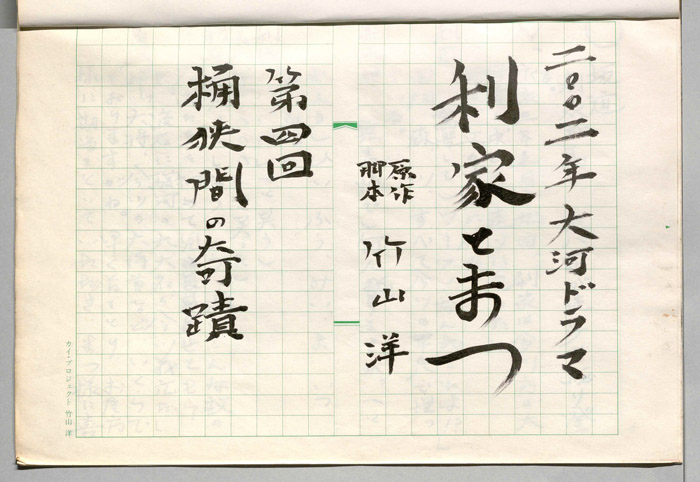 二〇〇二年大河ドラマ
利家とまつ
原作
脚本
竹山洋
第四回
桶狭間の奇蹟
カイ・プロジェクト 竹山 洋